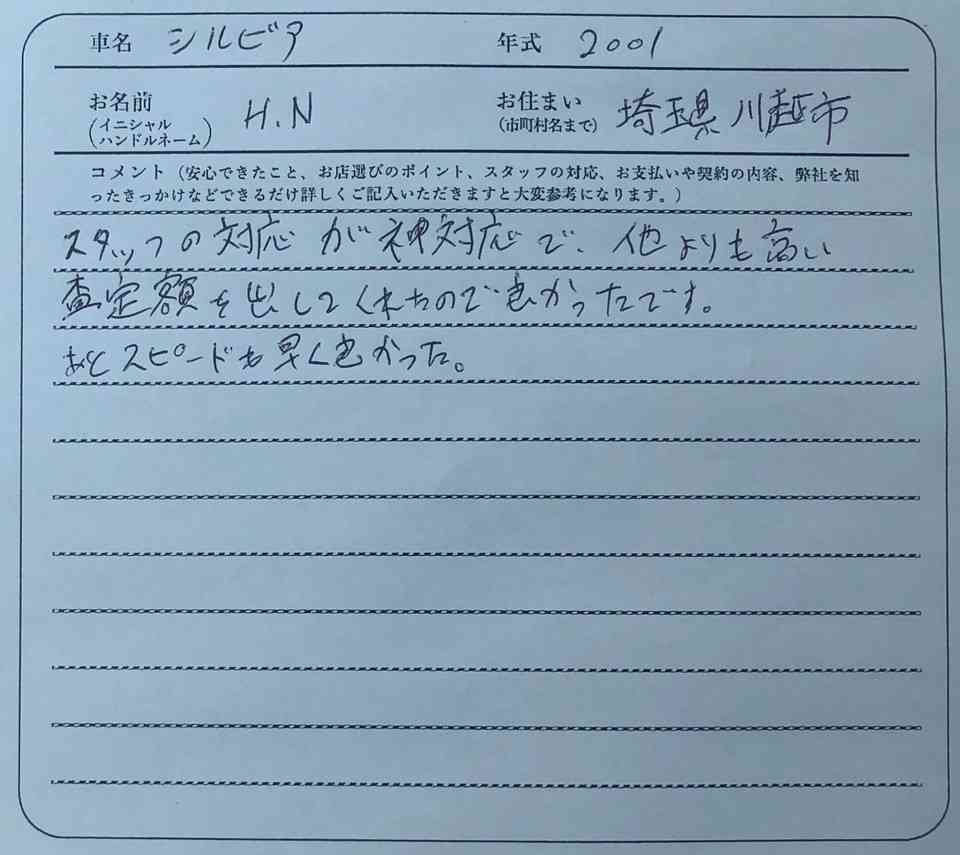 車名 シルビア 年式 2001
お名前 (イニシャル ハンドルネーム) H.N お住まい (市町村名まで) 埼玉県川越市
コメント（安心できたこと、お店選びのポイント、スタッフの対応、お支払いや契約の内容、弊社を知
ったきっかけなどできるだけ詳しくご記入いただきますと大変参考になります。）
スタッフの対応が神対応で、他よりも高い
査定額を出してくれたので良かったです。
あとスピードも早く良かった。